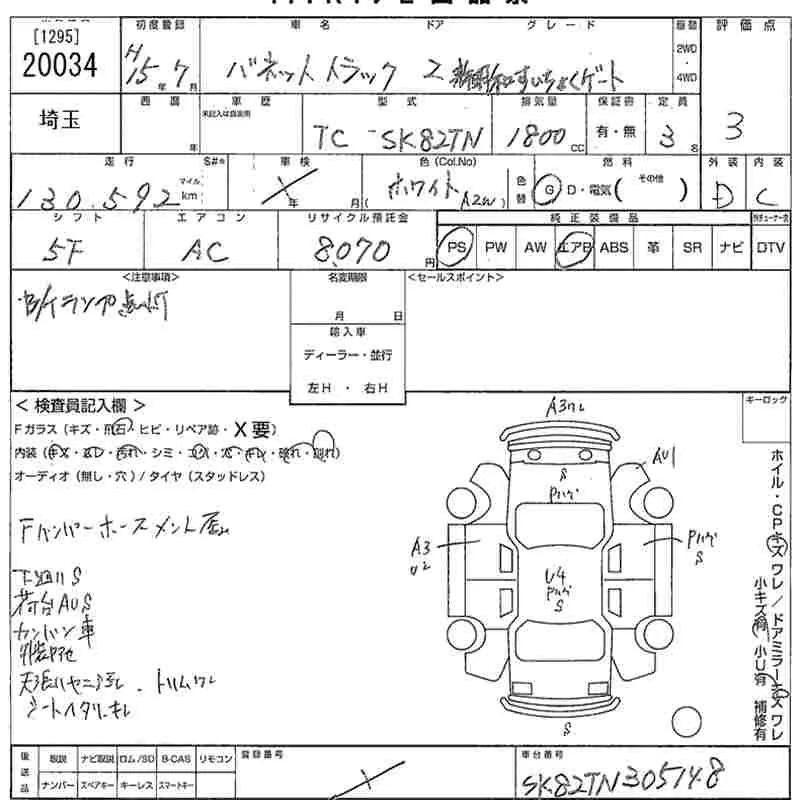 [1295]
20034
初度登録
H15年7月
車名
ドア
グレード
バネットトラック 2
すいちょくゲート
駆動
2WD
4WD
評価点
3
埼玉
西暦
年
車歴
未記入は自家用
型式
TC-SK82TN
排気量
1800cc
保証書
有・無
定員
3名
走行
130,592
マイル
km
S#※
車検
年 月
色(Col.No)
ホワイト
色替
燃料
G D・電気( その他 )
外装
D
内装
C
シフト
5F
エアコン
AC
リサイクル預託金
8,070円
純正装備品
PS PW AW エアB ABS 革 SR ナビ DTV
<注意事項>
名変期限
月 日
<セールスポイント>
輸入車
ディーラー・並行
左H ・ 右H
<検査員記入欄>
キーロック
Fガラス(キズ・飛石・ヒビ・リペア跡・X要)
オーディオ(無し・穴)/タイヤ(スタッドレス)
Fバンパーホースメント
下廻りS
荷台AUS
シートヘタリ・キレ
A3
AU1
S
Pハゲ
A3
U2
Pハゲ
S
U4
Pハゲ
S
S
ホイル・CPキズ ワレ/ドアミラーキズ ワレ
小キズ有 小U有 補修有
後送品
取説 ナビ取説 ロム/SD B-CAS リモコン
ナンバー スペアキー キーレス スマートキー
登録番号
車台番号
SK82TN305148